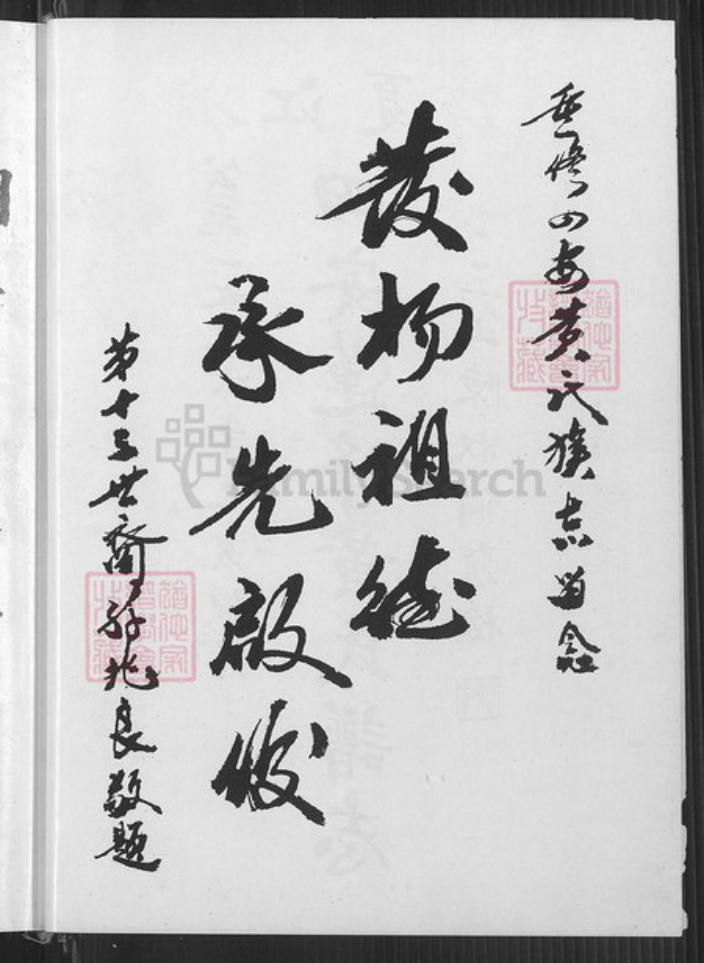 重修四安黄氏族志留念
發扬祖德
承先啟後
第十三世裔孙兆良敬題
FamilySearch